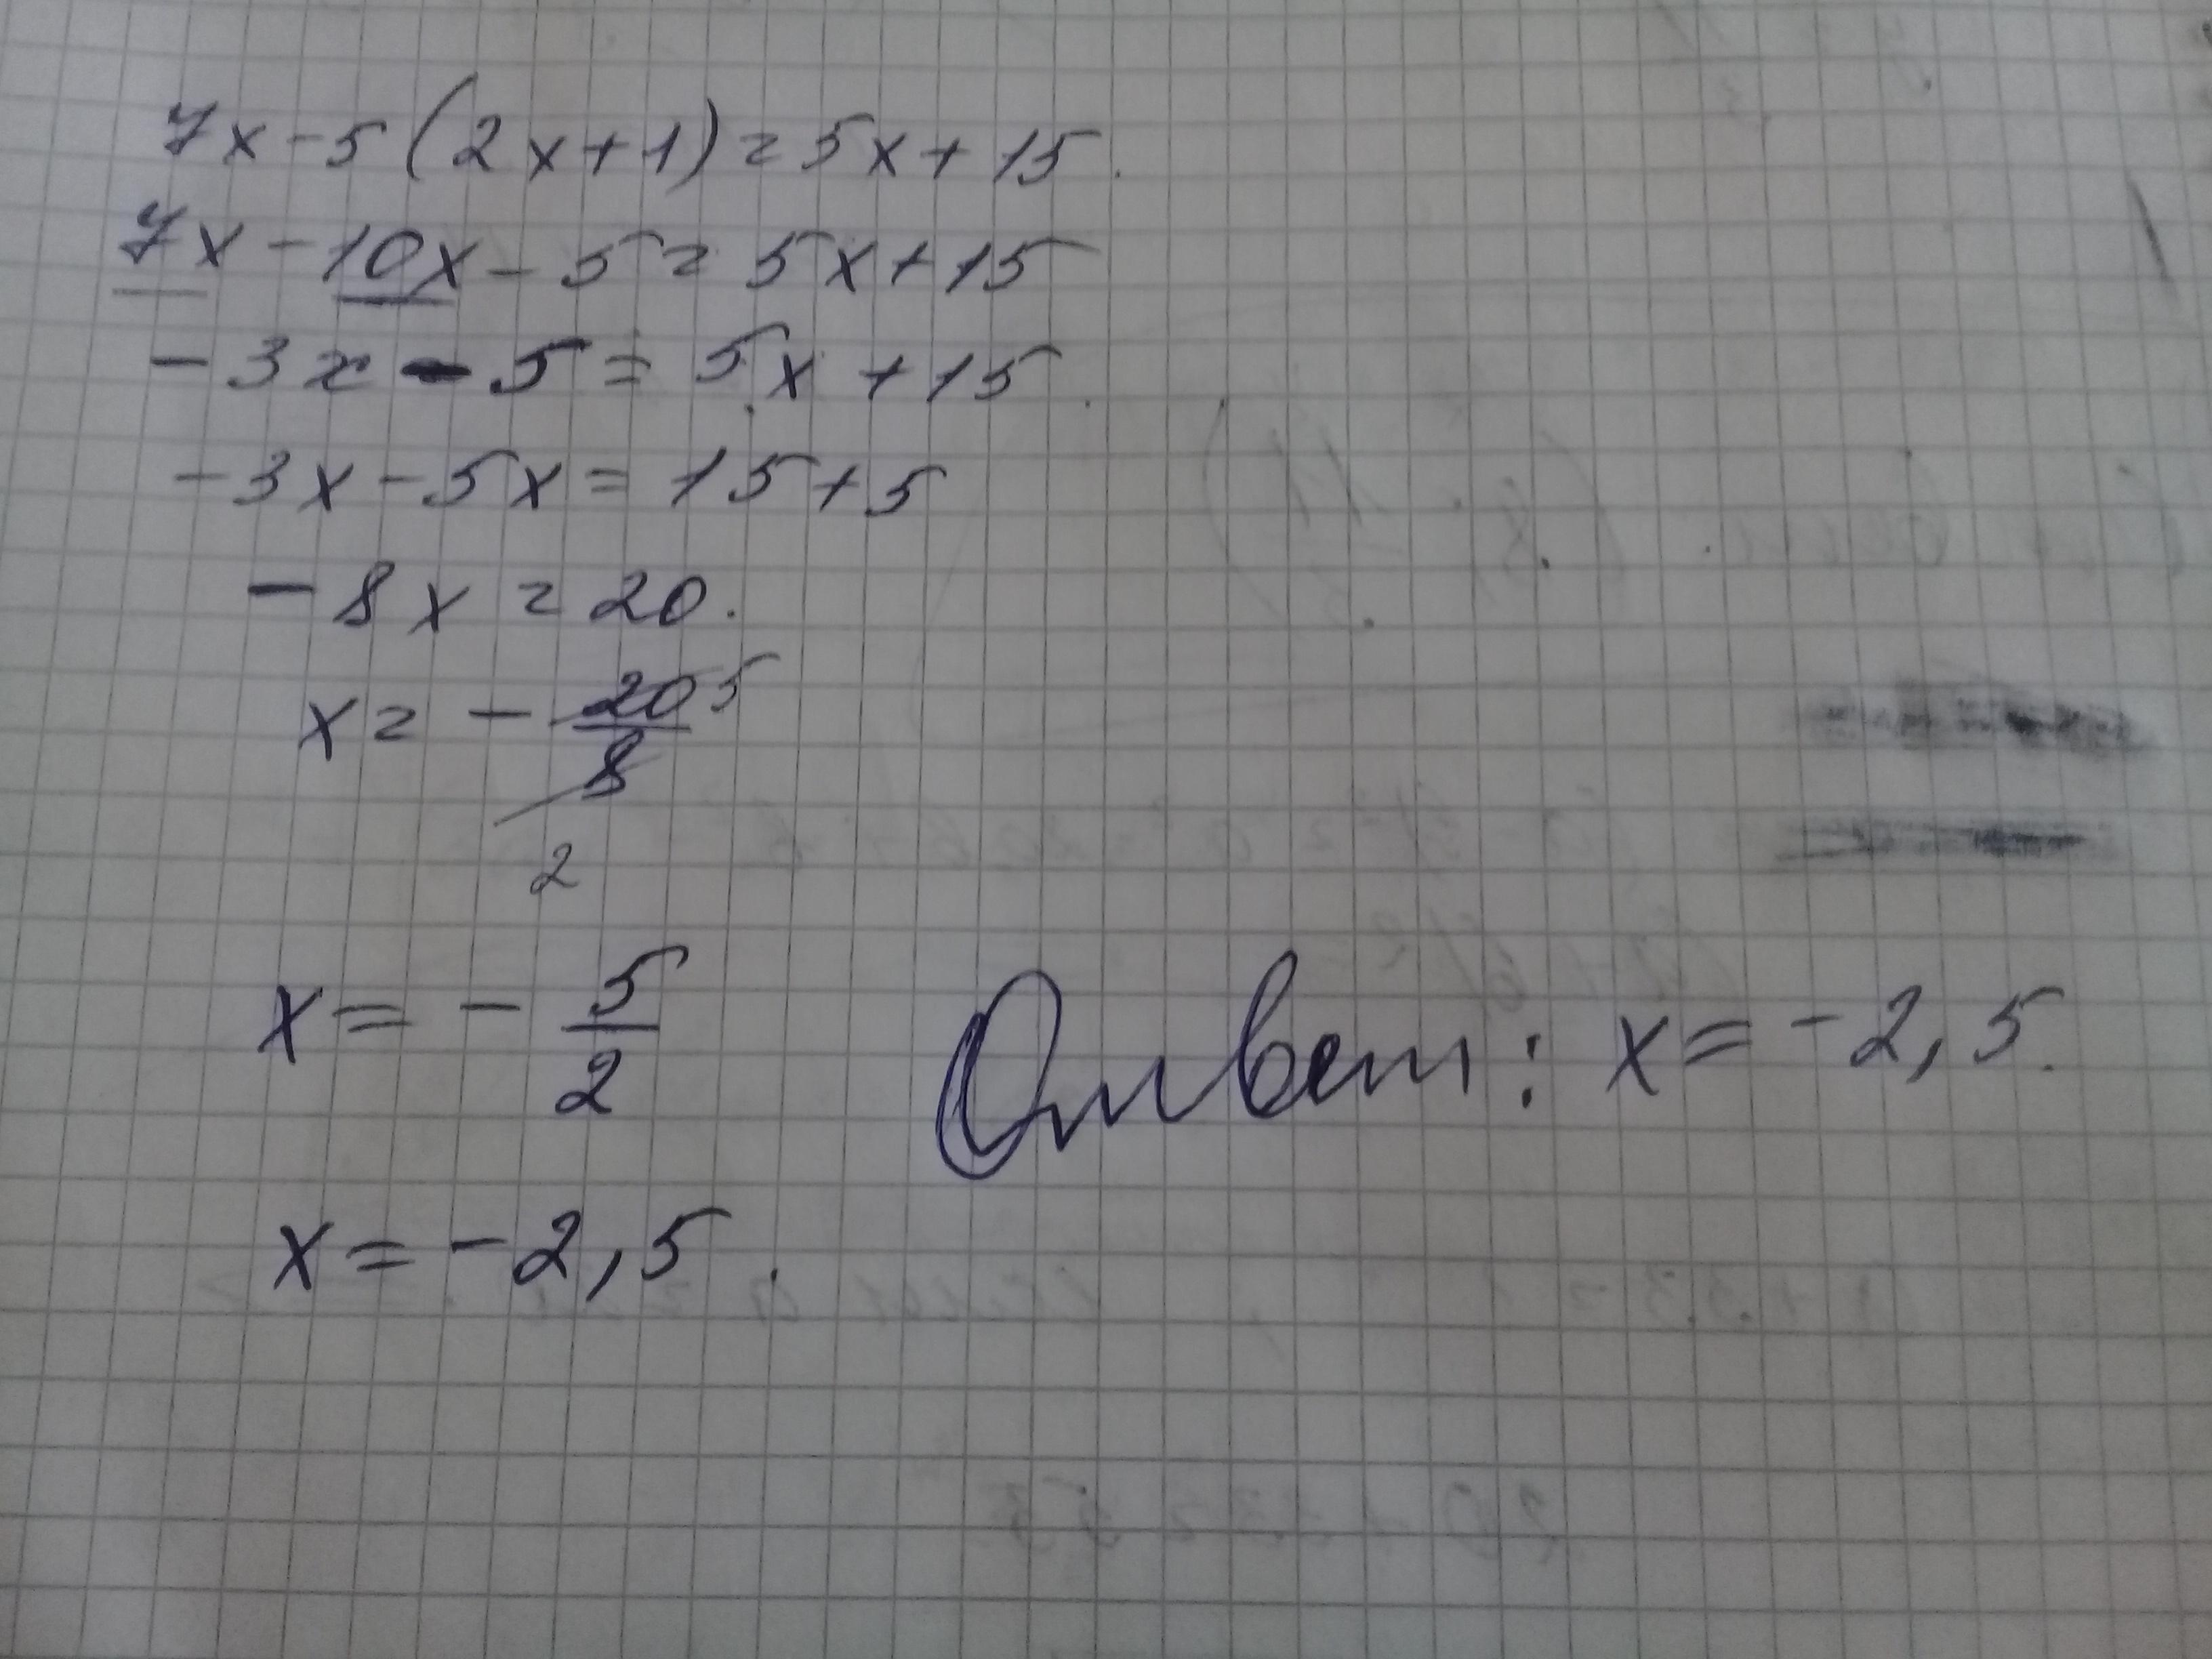 7x-5(2x+1)=5x+15.
7x-10x-5=5x+15
-3x-5=5x+15.
-3x-5x=15+5
-8x=20.
x=-20/8 5 2
x=-5/2
Ответ: x=-2,5.
x=-2,5.